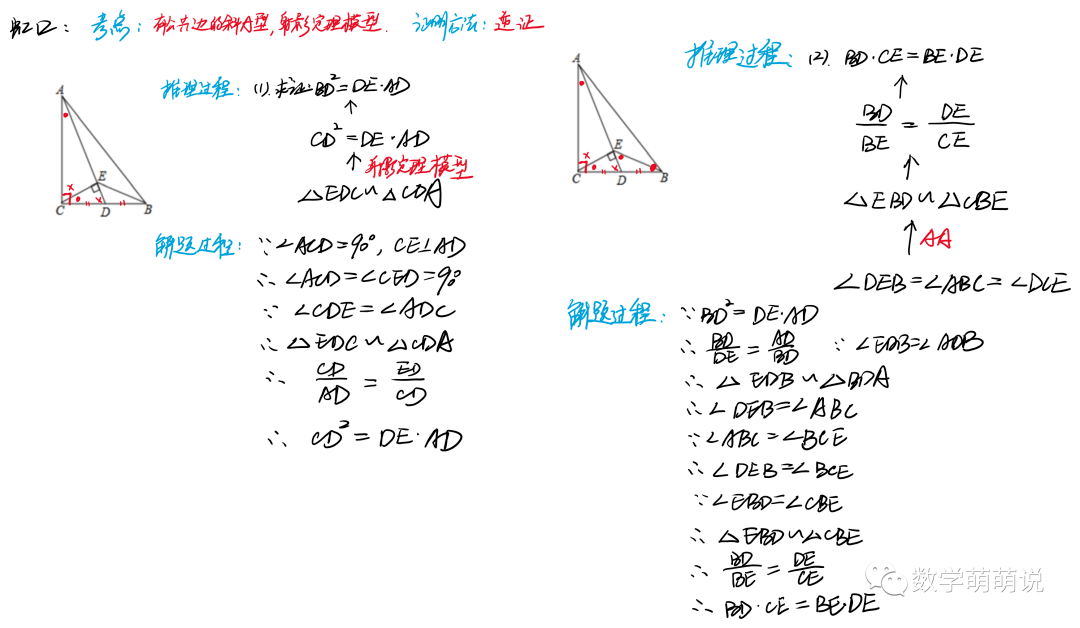 考点：有公共边的斜A型，射影定理模型．证明方法：逆证
推理过程：(1).求证BD²=DE·AD
↑
CD²=DE·AD
↑射影定理模型
△EDC∽△CDA
A
E
C
D
B
解题过程：∵∠ACD=90°, CE⊥AD
∴∠ACD=∠CED=90°
∵∠CDE=∠ADC
∴△EDC∽△CDA
∴CD/AD=ED/CD
∴CD²=DE·AD
推理过程：(2).BD·CE=BE·DE
↑
BD/BE=DE/CE
↑
△EBD∽△CBE
↑AA
∠DEB=∠ABC=∠DCE
A
E
C
D
B
解题过程：∵BD²=DE·AD
∴BD/DE=AD/BD ∵∠EDB=∠ADB
∴△EDB∽△BDA
∴∠DEB=∠ABC
∵∠ABC=∠BCE
∴∠DEB=∠BCE
∵∠EBD=∠CBE
∴△EBD∽△CBE
∴BD/BE=DE/CE
∴BD·CE=BE·DE
数学萌萌说